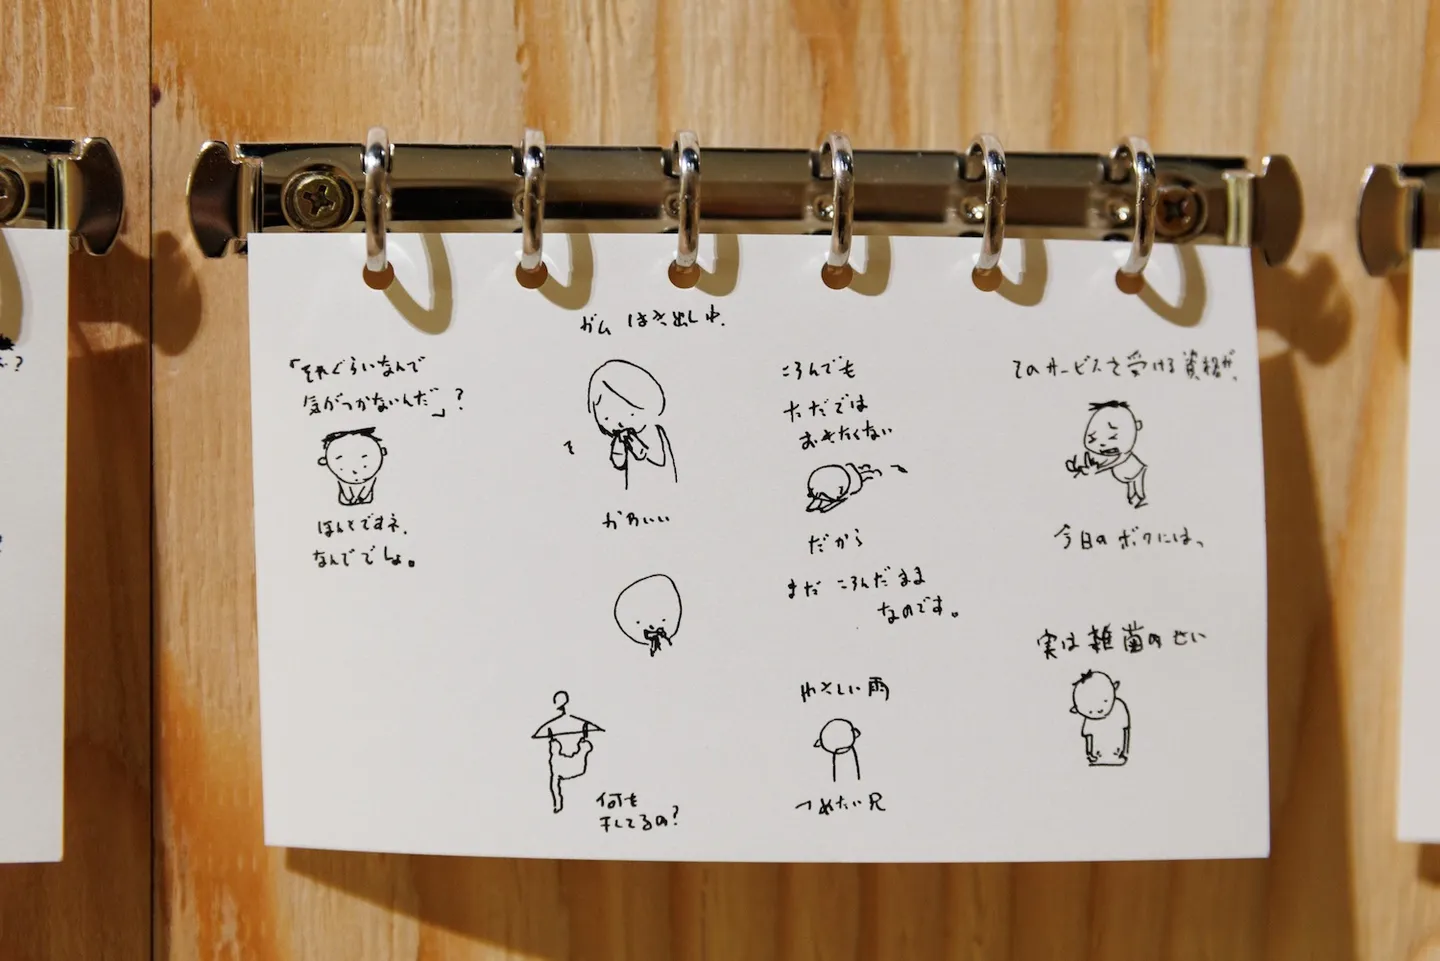 「それぐらいなんで
気がつかないんだ」?
ほんとですネ.
なんででしょ。
ガム はき出し中.
かわいい
何を
干してるの?
ころんでも
ただでは
おきたくない
だから
まだ ころんだまま
なのです。
やさしい雨
つめたい兄
このサービスを受ける資格が、
今日のボクには、
実は雑菌のせい
?